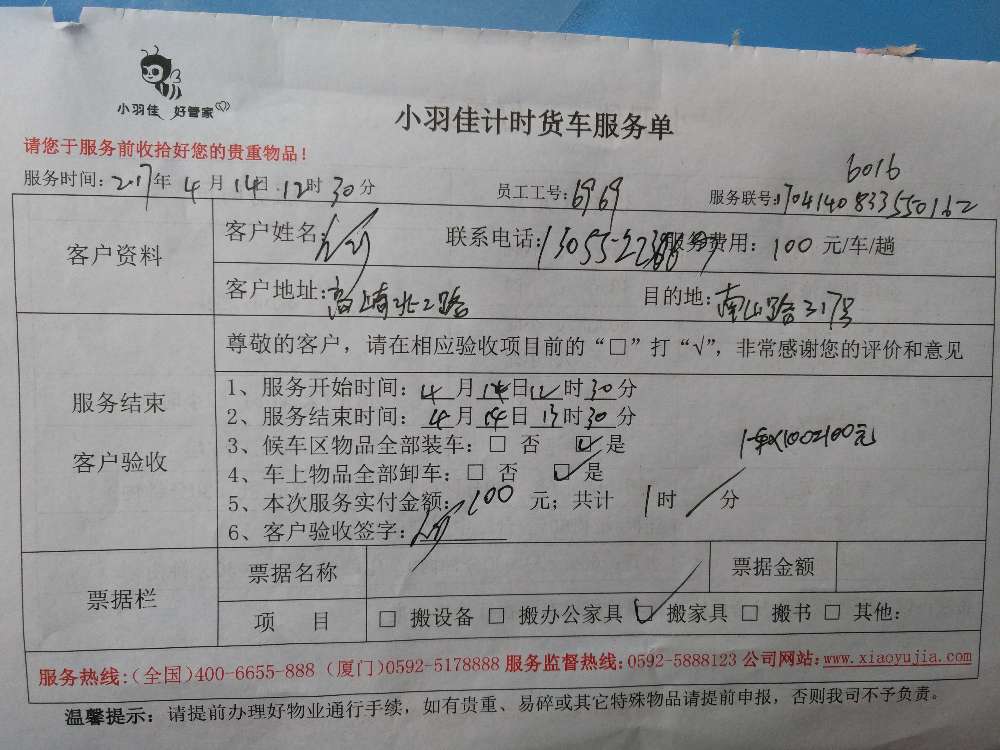 小羽佳 好管家
小羽佳计时货车服务单
请您于服务前收拾好您的贵重物品！
6016
服务时间：2017年 4月 14日 12时 30分 员工工号：6969 服务联号：
客户资料
客户姓名： 联系电话： 服务费用：100 元/车/趟
客户地址：高崎北二路 目的地：南山路317号
服务结束
客户验收
尊敬的客户，请在相应验收项目前的“□”打“√”，非常感谢您的评价和意见
1、服务开始时间：4 月 14 日 12 时 30 分
2、服务结束时间：4 月 14 日 13 时 30 分
3、候车区物品全部装车：□ 否 ☑ 是
1车×100=100元
4、车上物品全部卸车：□ 否 ☑ 是
5、本次服务实付金额：100 元；共计 1时 / 分
6、客户验收签字：
票据栏
票据名称 票据金额
项 目 □ 搬设备 □ 搬办公家具 ☑ 搬家具 □ 搬书 □ 其他：
服务热线：（全国）400-6655-888（厦门）0592-5178888 服务监督热线：0592-5888123 公司网站：www.xiaoyujia.com
温馨提示：请提前办理好物业通行手续，如有贵重、易碎或其它特殊物品请提前申报，否则我司不予负责。